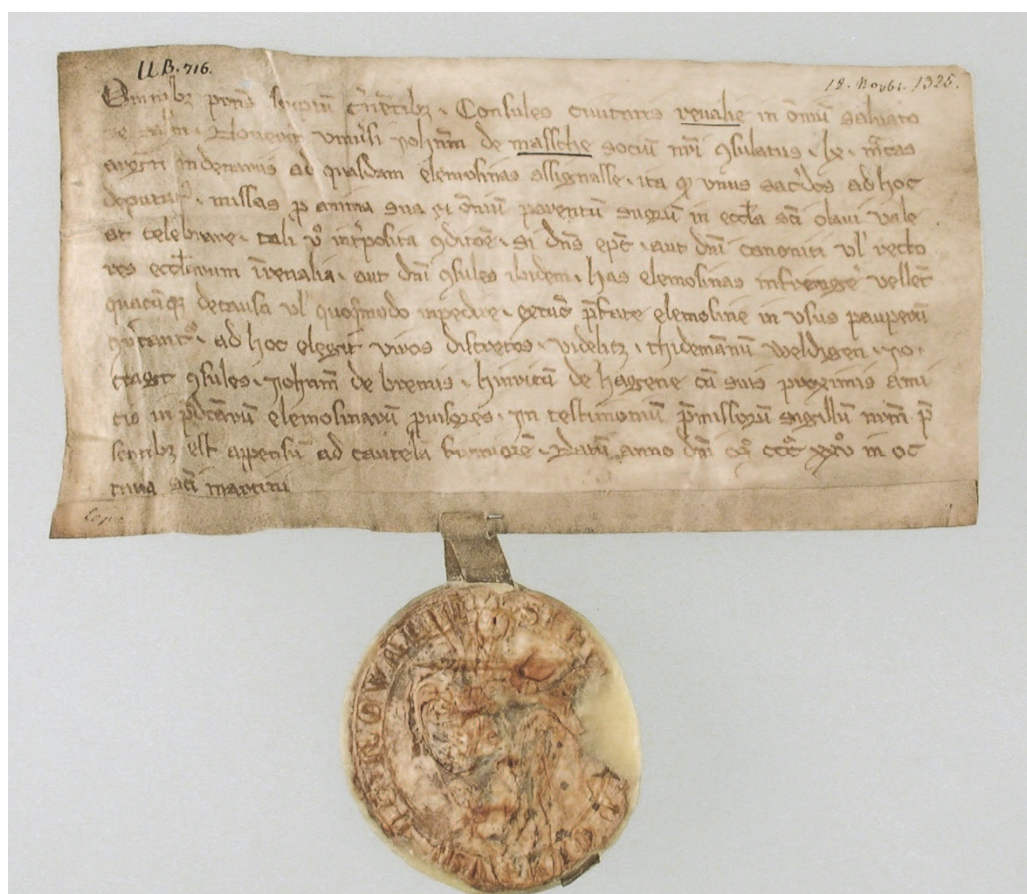 UB. 716.
18. Novbr. 1325.
Omnibz pns scriptum cernentibz . Consules civitatis revalie in omnium salvato
re salutem . Noverit vniversi Johnm de massche socium nri consulatus . lx . marcas
argenti in denariis ad quasdam elemosinas assignasse . ita qd vnus sacerdos ad hoc
deputatus . missas p anima sua et omnium parentum suorum in eccla sci olavi vale
at celebrare . tali vo interposita condicione . si dns epc . aut dni canonici vl recto
res ecclarum in revalia . aut dni consules ibidem . has elemosinas infringere vellent
quacumqz de causa vl quomodo inpedire . extunc elemosine in vsus pauperum
. ad hoc elegit viros discretos . videlicz . thidemannum weldigen . Jo
consules . Johnm de bremis . hinricum de hagene cum suis proximis ami
cis in predictarum elemosinarum provisores . In testimonium premissorum sigillum nrm pre
sentibz est appensum ad cautela firmiorem . Datum anno dni mo ccco xxvo in oc
tava sci martini